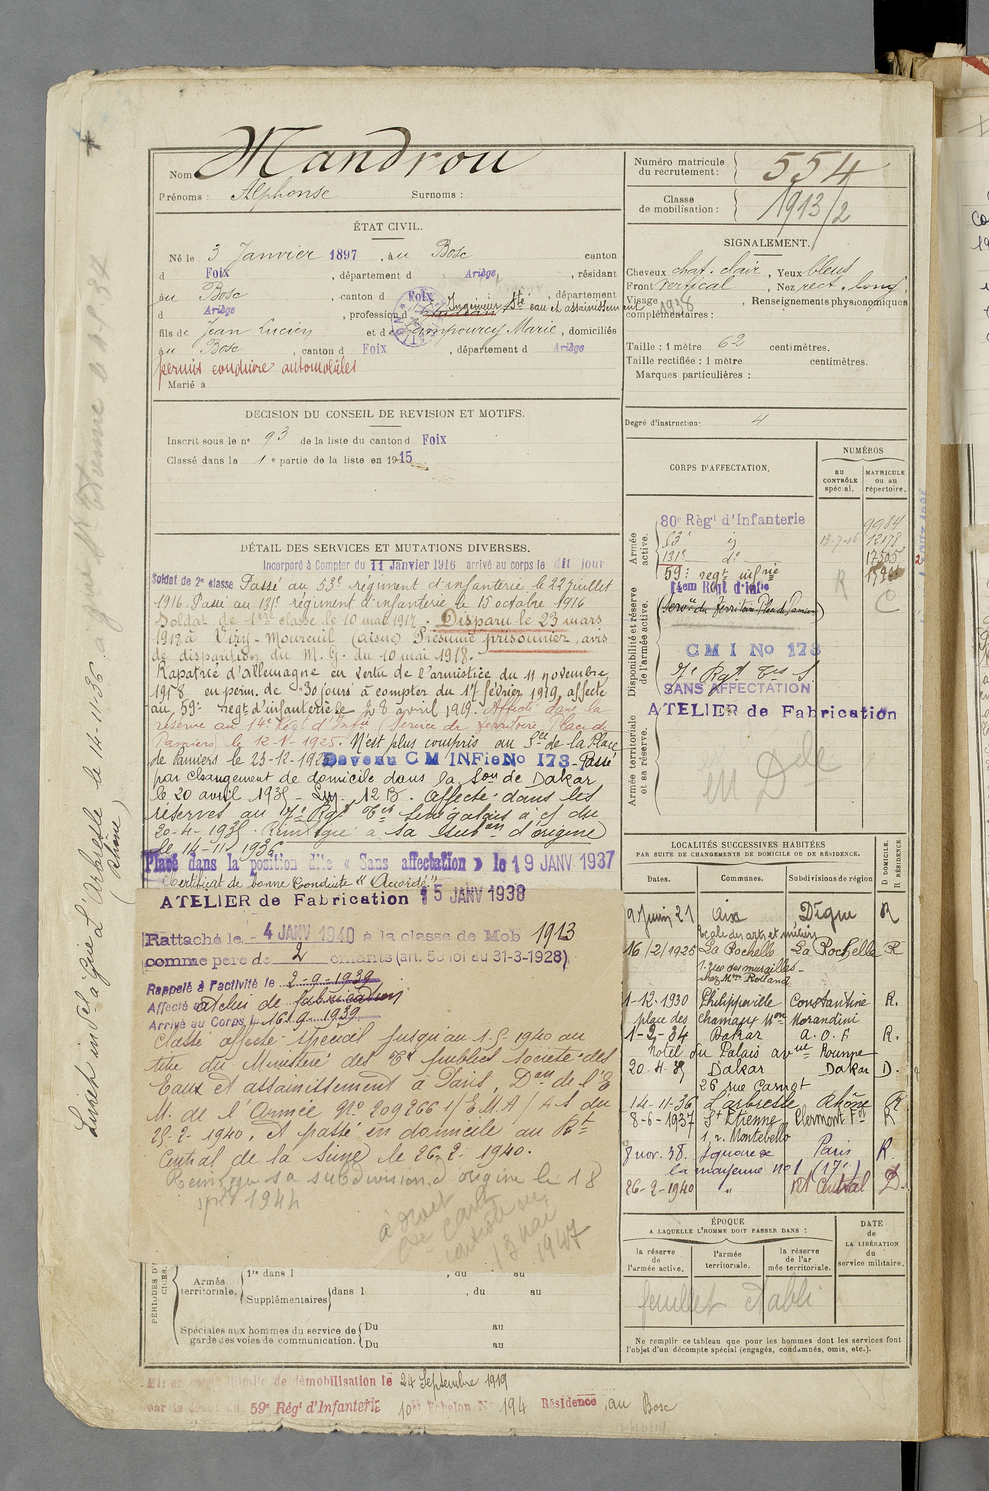 Nom Mandrou
Prénoms : Alphonse Surnoms :
Numéro matricule du recrutement : 554
Classe de mobilisation : 1913/2
ÉTAT CIVIL.
Né le 3 Janvier 1897, au Bosc canton
d Foix, département d Ariège, résidant
au Bosc, canton d Foix, département
d Ariège, profession d Ingénieur Sté eau et assainissement 1938
fils de Jean Lucien et d Lampourcy Marie, domiciliés
au Bosc, canton d Foix, département d Ariège
permis conduire automobiles
Marié à
SIGNALEMENT.
Cheveux chat. clair, Yeux bleus
Front vertical, Nez rect. long,
Visage Renseignements physionomiques
complémentaires :
Taille : 1 mètre 62 centimètres.
Taille rectifiée : 1 mètre centimètres.
Marques particulières :
Degré d'instruction : 4
DECISION DU CONSEIL DE REVISION ET MOTIFS.
Inscrit sous le n° 93 de la liste du canton d Foix
Classé dans la 1e partie de la liste en 1915
DÉTAIL DES SERVICES ET MUTATIONS DIVERSES.
Incorporé à Compter du 11 Janvier 1916 arrivé au corps le dit jour
Soldat de 2e classe Passé au 53e régiment d'infanterie le 22 juillet
1916. Passé au 131e régiment d'infanterie le 15 octobre 1916
Soldat de 1ere classe le 10 mai 1917. Disparu le 23 mars
1918 à Viry-Moureuil (aisne) Présumé prisonnier, avis
de disparition du M. G. du 10 mai 1918.
Rapatrié d'allemagne en vertu de l'armistice du 11 novembre
1918 en perm. de 30 jours à compter du 17 février 1919, affecté
au 59e regt d'infanterie le 28 avril 1919. Affecté dans la
réserve au 14e Régt d'Infie (Service de territoire, Place de
Pamiers) le 12-1-1925. N'est plus compris au Sce de la Place
de Pamiers le 23-12-192 Devenu CM INFie No 173 - Passé
par changement de domicile dans la Son de Dakar
le 20 avril 1935 - affecté dans les
réserves au 7e Rgt Tis Sénégalais à cj du
20-4-1935. Réintégré à sa subon d'origine
le 14-11-1936.
Placé dans la position dite « Sans affectation » le 19 JANV 1937
Certificat de bonne Conduite "Accordé"
ATELIER de Fabrication 15 JANV 1938
Rattaché le 4 JANV 1940 à la classe de Mob 1913
comme père de 2 enfants (art. 58 loi du 31-3-1928)
Rappelé à l'activité le 2-9-1939
Affecté atelier de fabrication
Arrivé au Corps le 16.9.1939
Classé affecté spécial jusqu'au 1.5 1940 au
titre du Ministère des Tx publics Société des
Eaux et assainissement à Paris, Don de l'E
M. de l'Armée No 209266 1/E.M.A/ du
25-2-1940. Et passé en domicile au Rt
Central de la Seine le 26-2-1940.
Réintégré sa subdivision d'origine le 18
1944
à droit
au carte
13 mai
1947
CORPS D'AFFECTATION.
NUMÉROS
au CONTRÔLE spécial.
MATRICULE ou au répertoire.
Armée active.
80e Régt d'Infanterie 9984
53e 13-7-16 12178
131e do
59e regt infrie
Disponibilité et réserve de l'armée active.
14em Régt d'Infie
(Servce du Territoire Place de Pamiers)
CMI No 173
7e Rgt Tis S.
SANS AFFECTATION
ATELIER de Fabrication
Armée territoriale et sa réserve.
en Dde
LOCALITÉS SUCCESSIVES HABITÉES
PAR SUITE DE CHANGEMENTS DE DOMICILE OU DE RÉSIDENCE.
Dates. Communes. Subdivisions de région D DOMICILE. R RÉSIDENCE
9 Juin 21 Aix Digne R
Ecole des arts et métiers
16/2/1925 La Rochelle La Rochelle R
1. rue des murailles
chez Mme Rolland
1-12-1930 Philippeville Constantine R.
place des chameaux Mon Morandini
1-2-34 Dakar A. O. F. R.
Hotel du Palais avnue Roume
20-4-35 Dakar Dakar D.
26 rue Carnot
14-11-36 L'arbresle Rhône R
8-6-1937 St Etienne Clermont Fd R
1, r. Montebello
8 nov. 38. Square Paris R.
la mayenne no 1 (17e)
26-2-1940 " Rt Central D.
ÉPOQUE
A LAQUELLE L'HOMME DOIT PASSER DANS :
DATE de LA LIBÉRATION du service militaire.
la réserve de l'armée active.
l'armée territoriale.
la réserve de l'armée territoriale.
feuillet établi
Ne remplir ce tableau que pour les hommes dont les services font
l'objet d'un décompte spécial (engagés, condamnés, omis, etc.).
Armée territoriale.
1re dans l , du au
Supplémentaires dans l , du au
Spéciales aux hommes du service de garde des voies de communication.
Du au
Du au
Mis en congé illimité de démobilisation le 24 Septembre 1919
par le dépôt du 59e Régt d'Infanterie 10e Echelon No 194 Résidence, au Bosc